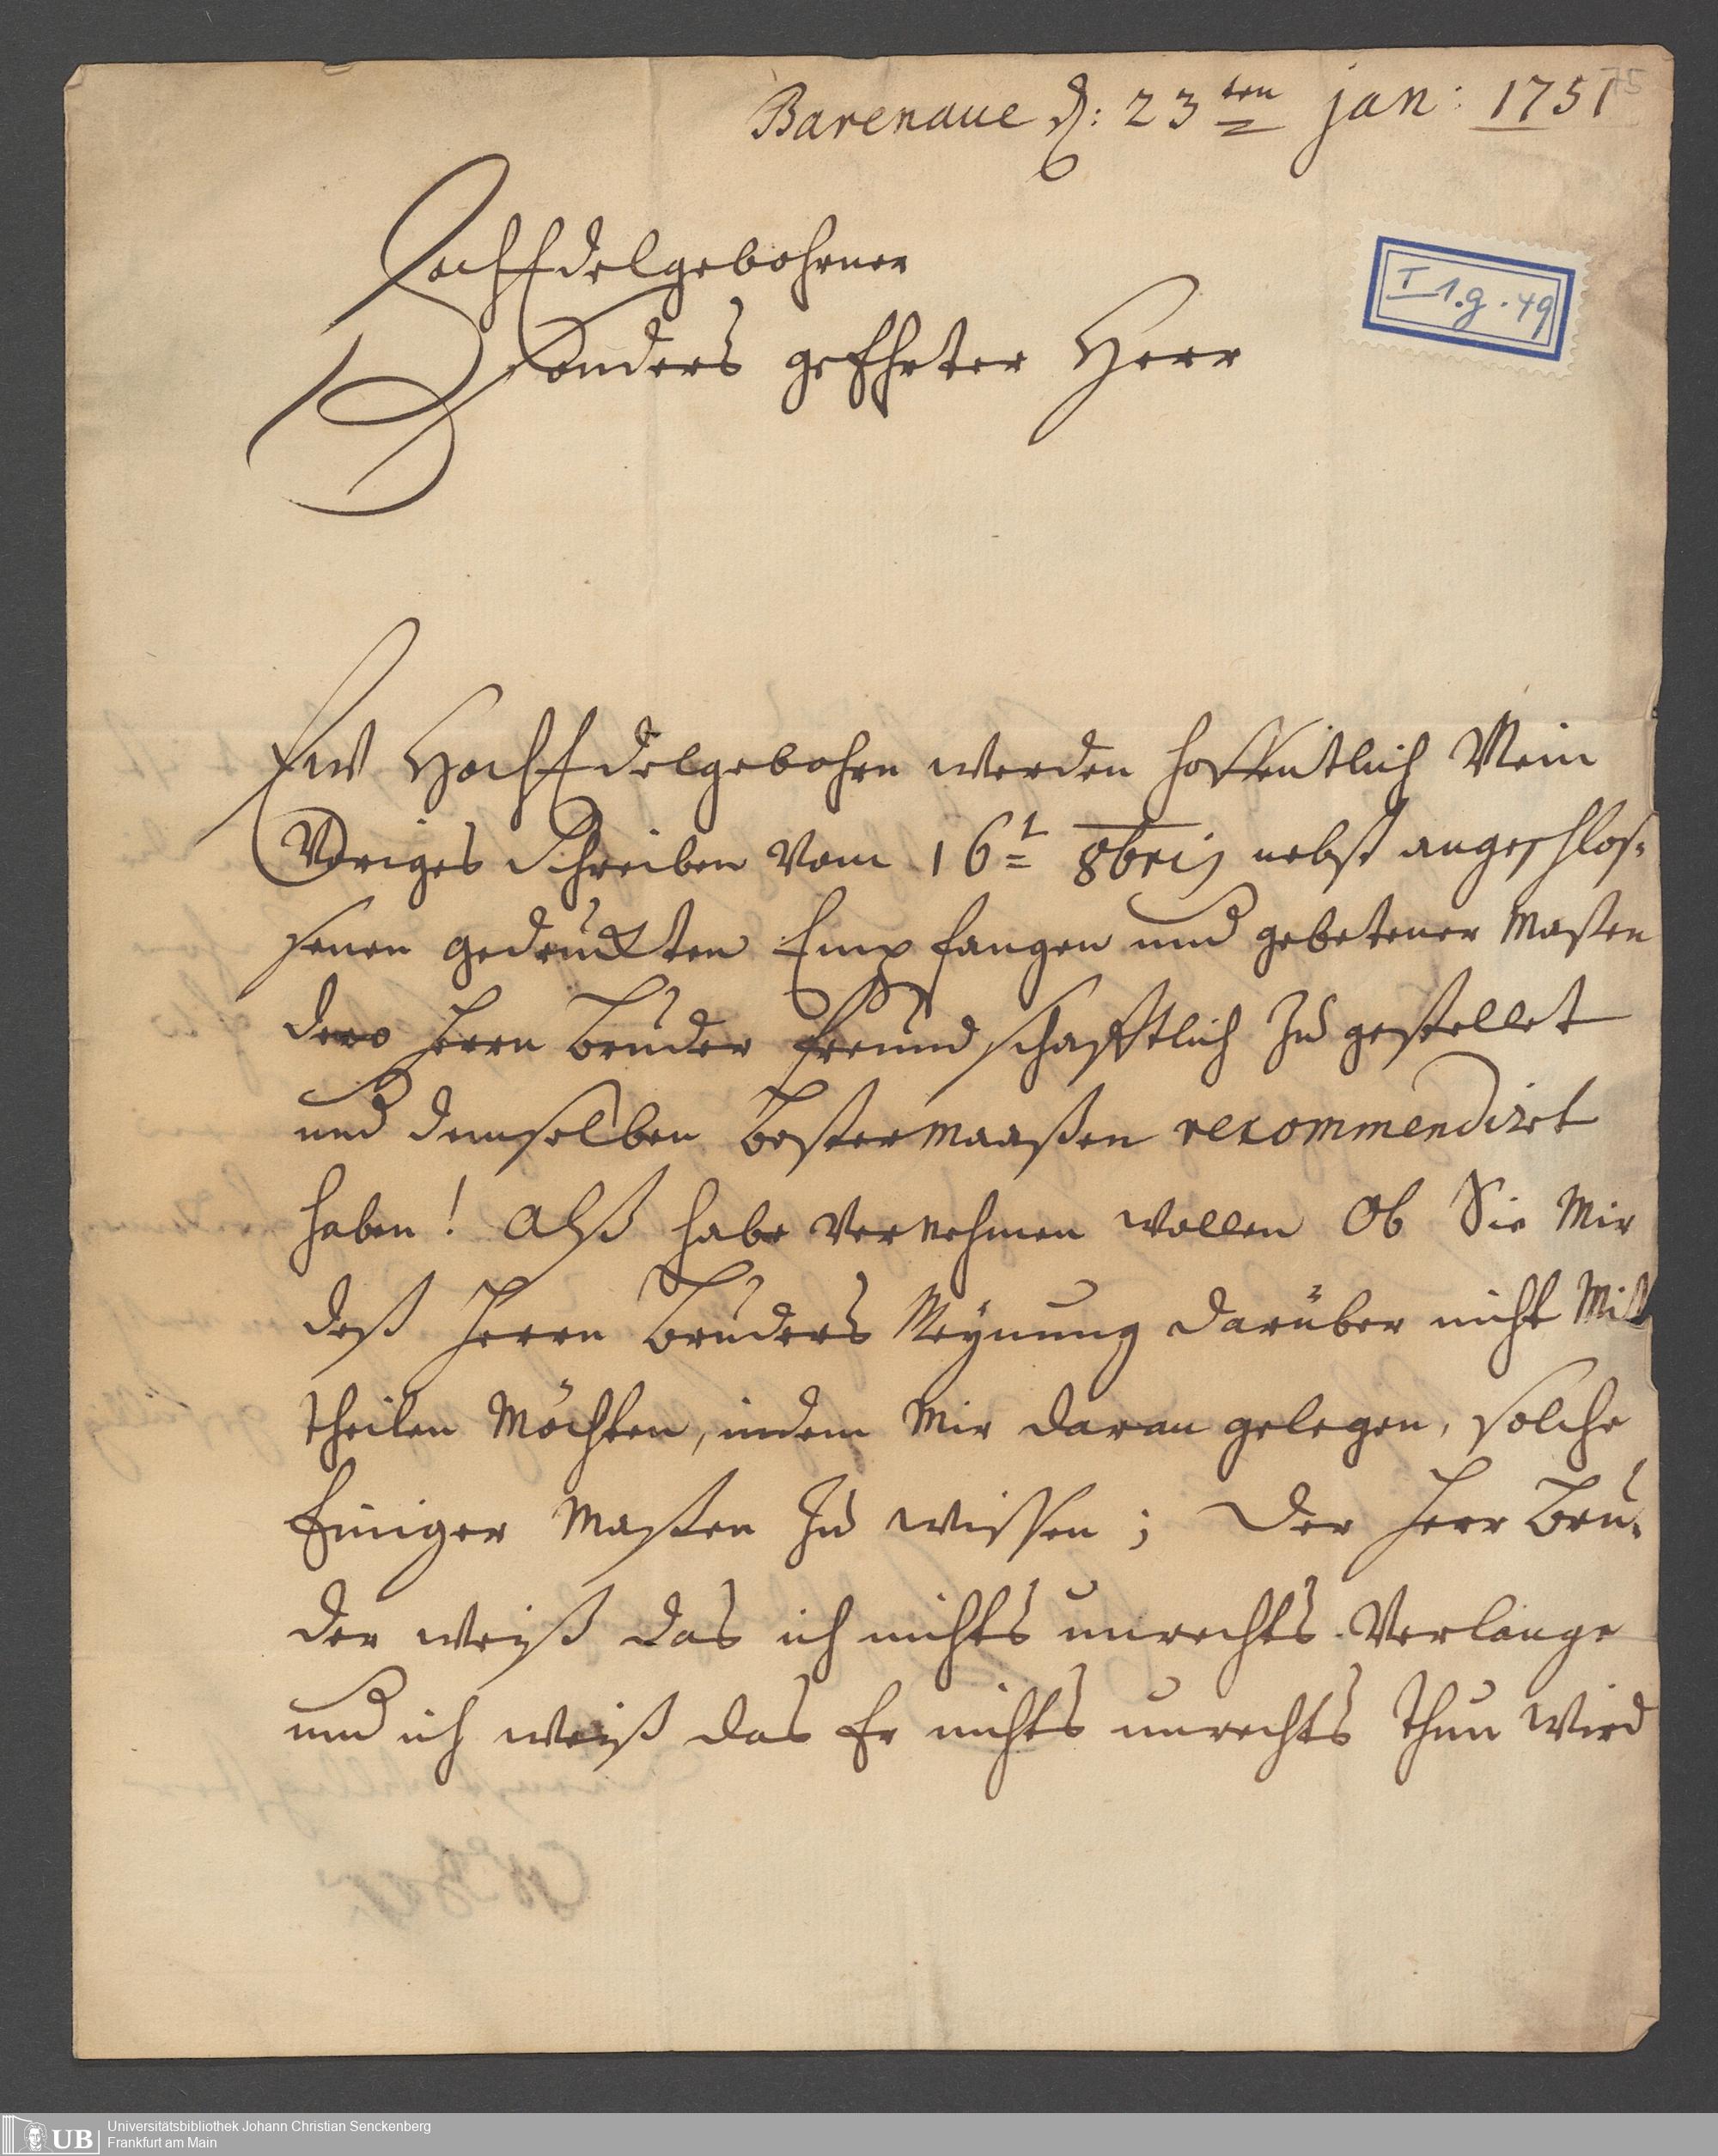 75
Barenaue d: 23ten jan: 1751
HochEdelgebohrner
Besonders geEhrter Herr
I 1.g.49
Ew HochEdelgebohrn werden hoffentlich Mein
Voriges Schreiben Vom 16t 8bris nebst angeschlos-
senen gedruckten Empfangen und gebetener Maßen
dero Herrn Bruder freundschafftlich Zu gestellet
und demselben bestermaaßen recommendiret
haben! Alß habe Vernehmen wollen Ob Sie Mir
deß Herrn Bruders Meÿnung darüber nicht Mit
theilen Möchten, indem Mir daran gelegen, solche
Einiger Maßen Zu wissen; Der Herr Bru-
der weiß das ich nichts unrechts Verlange
und ich weiß das Er nichts unrechts thun wird
UB
Universitätsbibliothek Johann Christian Senckenberg
Frankfurt am Main